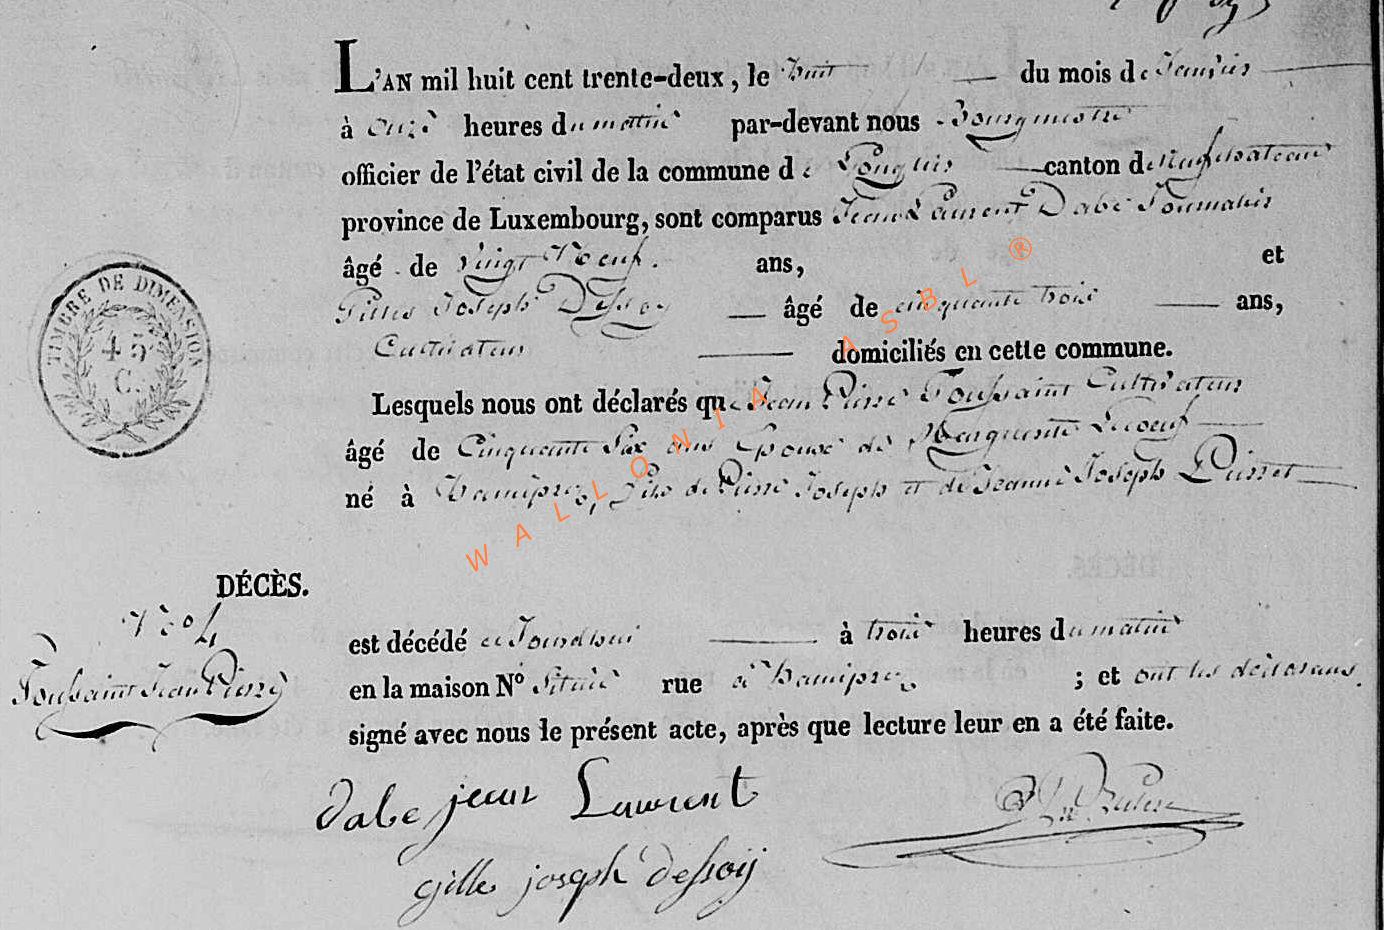 L'AN mil huit cent trente-deux, le huit du mois de Janvier
à onze heures du matin par-devant nous Bourgmestre
officier de l'état civil de la commune de Longlier canton de Neufchateau
province de Luxembourg, sont comparus Jean Laurent Dabe Journalier
âgé de vingt Neuf ans, et
Gilles Joseph Dessoy âgé de cinquante trois ans,
Cultivateur domiciliés en cette commune.
Lesquels nous ont déclarés que Jean Pierre Toussaint Cultivateur
âgé de Cinquante Six ans Epoux de Marguerite Lecoeuf
né à Hamipré, fils de Pierre Joseph et de Jeanne Joseph Pierret
DÉCÈS.
N° 4
Toussaint Jean Pierre
est décédé ce Jourdhui à trois heures du matin
en la maison N° Située rue à Hamipré ; et ont les déclarans
signé avec nous le présent acte, après que lecture leur en a été faite.
dabe jean Laurent
gille joseph dessoij
TIMBRE DE DIMENSION
45
C.
WALLONIA ASBL ®